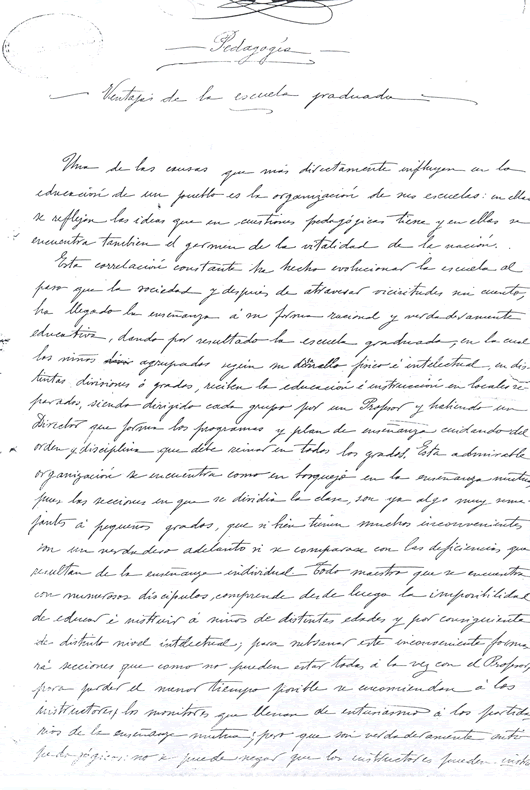 Pedagogía
Ventajas de la escuela graduada
Una de las causas que más directamente influyen en la
educación de un pueblo es la organización de sus escuelas: en ellas
se reflejan las ideas que en cuestiones pedagógicas tiene y en ellas se
encuentra tambien el germen de la vitalidad de la nación.
Esta correlación constante ha hecho evolucionar la escuela al
paso que la sociedad y después de atravesar vicisitudes sin cuento,
ha llegado la enseñanza á su forma racional y verdaderamente
educativa, dando por resultado la escuela graduada, en la cual
los niños agrupados según su desarrollo físico é intelectual, en dis-
tintas divisiones ó grados, reciben la educación é instrucción en locales se-
parados, siendo dirigido cada grupo por un Profesor y habiendo un
Director que forma los programas y plan de enseñanza cuidando del
orden y disciplina que debe reinar en todos los grados. Esta admirable
organización se encuentra como en bosquejo en la enseñanza mutua
pues las secciones en que se dividía la clase, son ya algo muy seme-
jantes á pequeños grados, que si bien tienen muchos inconvenientes
son un verdadero adelanto si se comparase con las deficiencias que
resultan de la enseñanza individual. Todo maestro que se encuentra
con numerosos discípulos, comprende desde luego la imposibilidad
de educar é instruir á niños de distintas edades y por consiguiente
de distinto nivel intelectual; para subsanar este inconveniente forma-
rá secciones que como no pueden estar todas á la vez con el Profesor,
para perder el menor tiempo posible se encomiendan á los
instructores, los monitores que llenan de entusiasmo á los partida-
rios de la enseñanza mutua; pero que son verdaderamente anti-
pedagógicos: no se puede negar que los instructores pueden